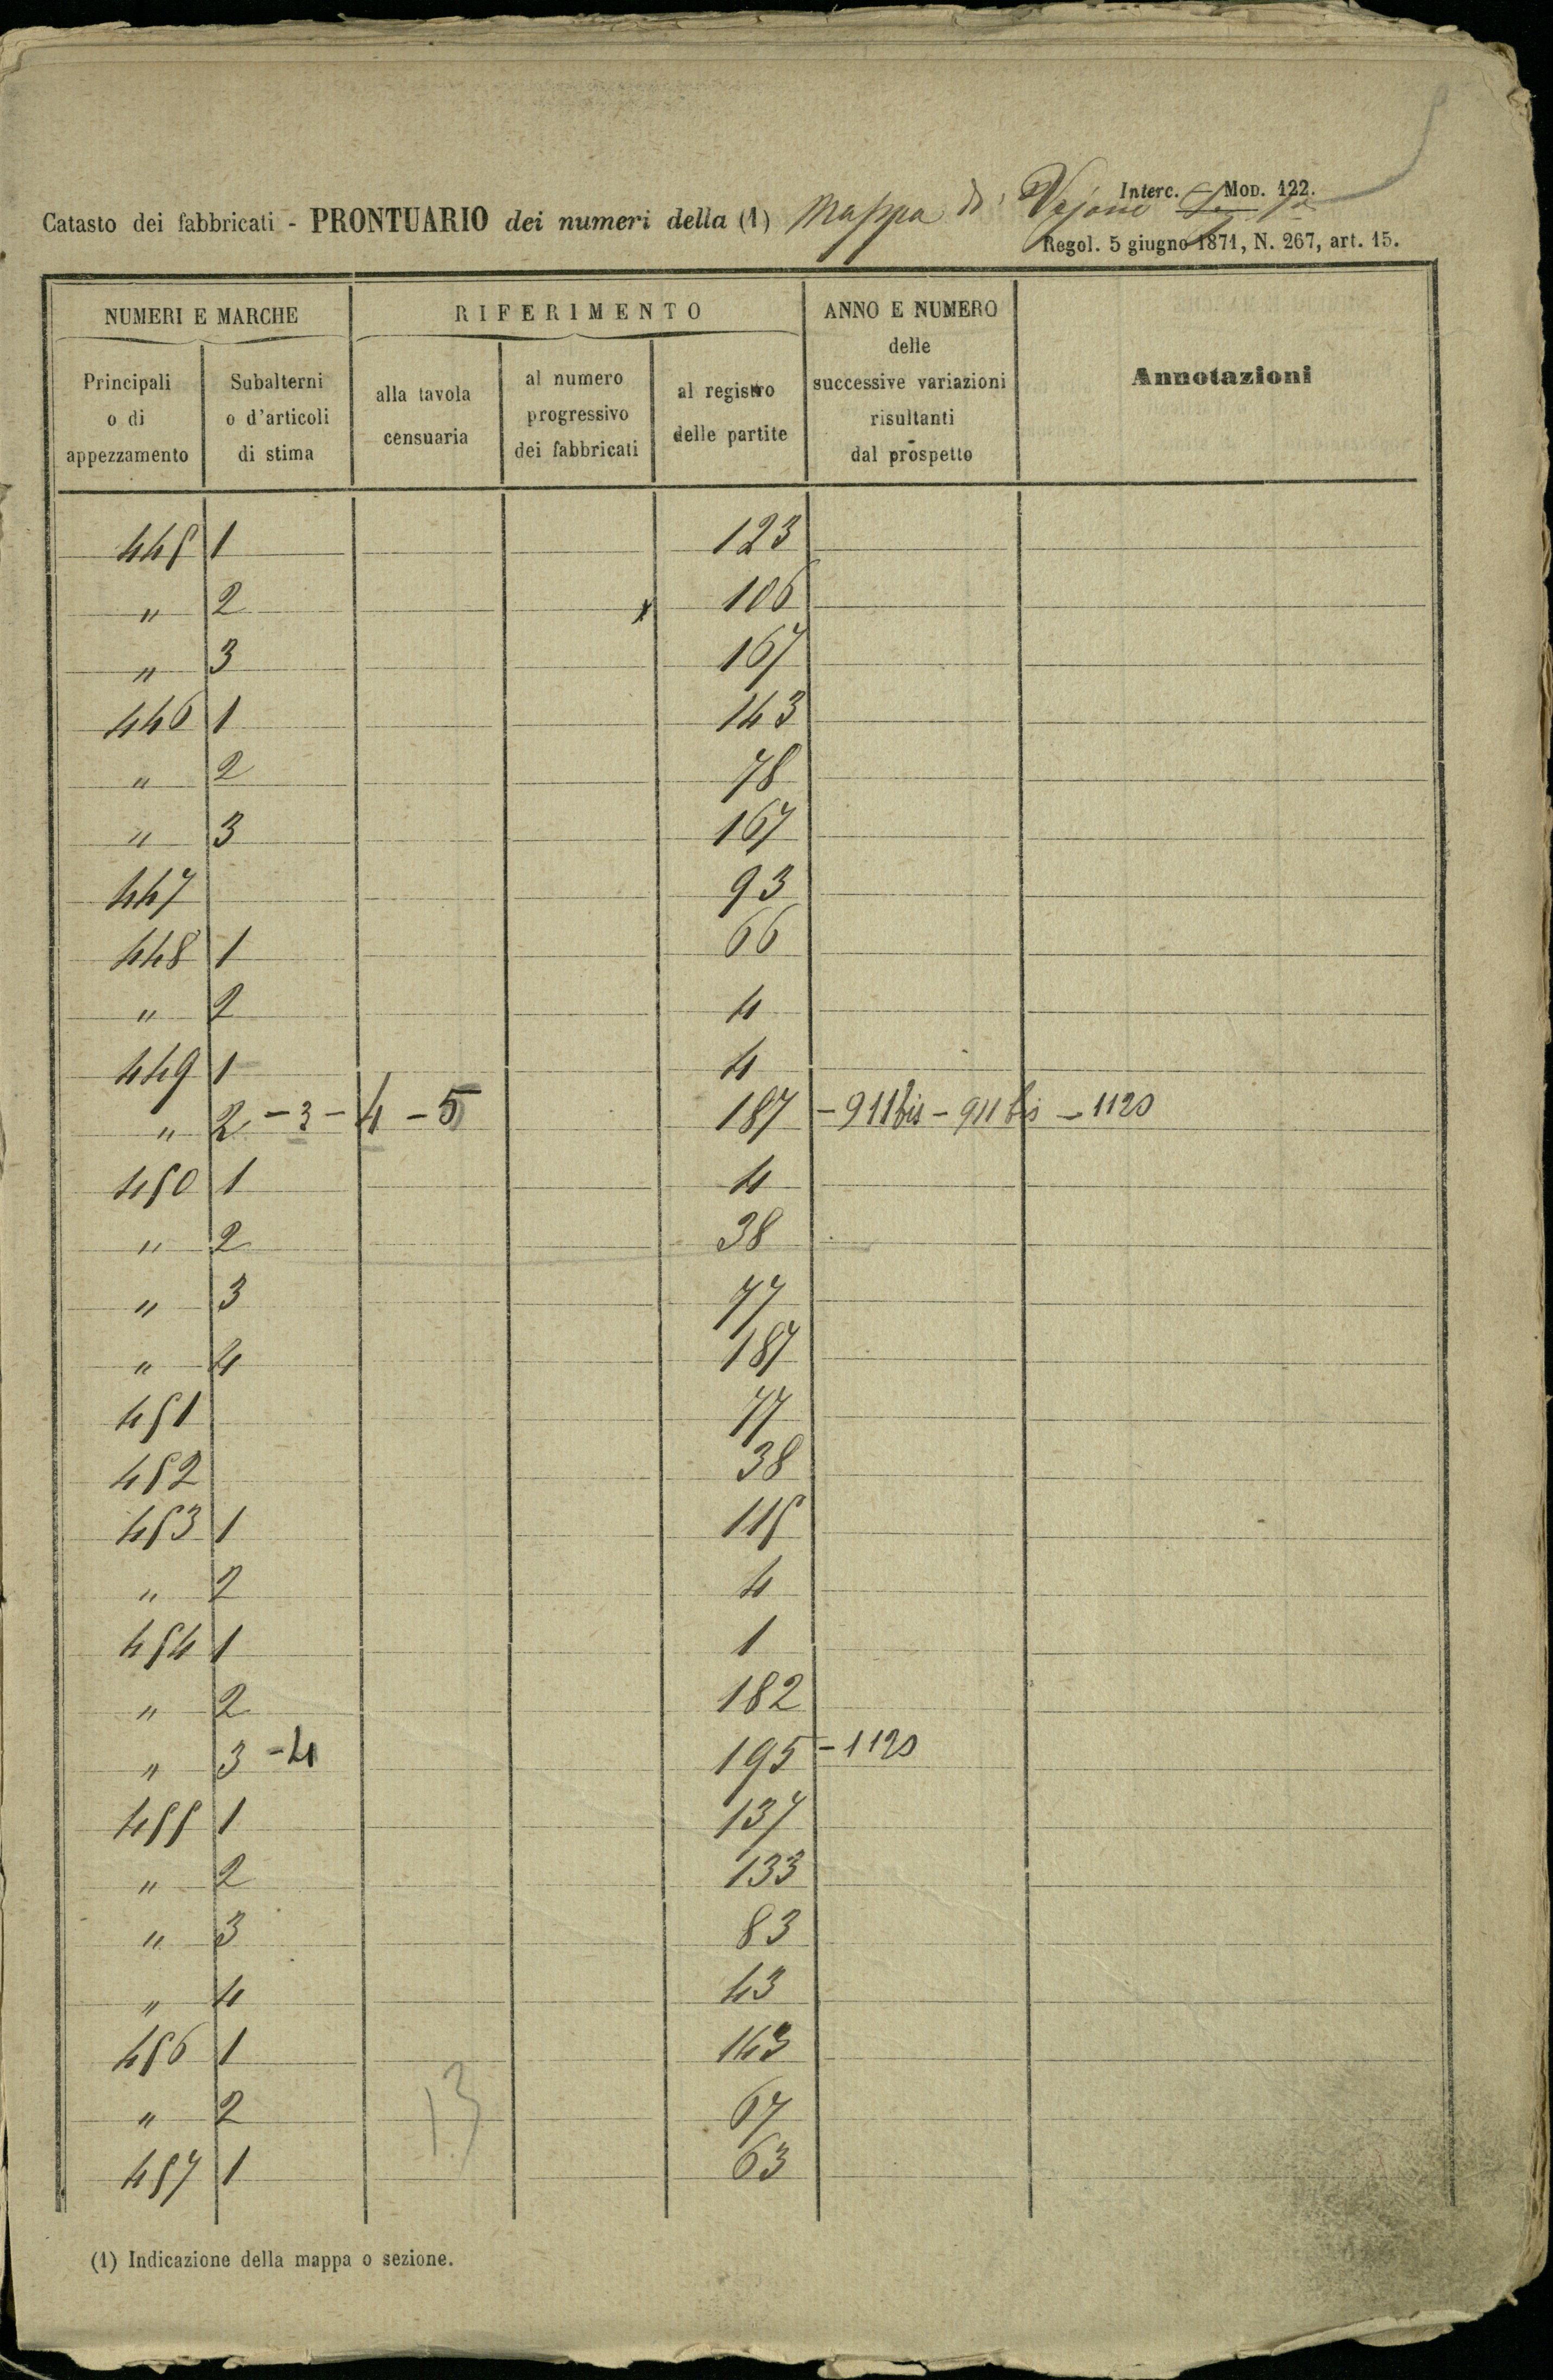 Interc. Mod. 122.
Catasto dei fabbricati - PRONTUARIO dei numeri della (1) Mappa di Vajone
Regol. 5 giugno 1871, N. 267, art. 15.
NUMERI E MARCHE RIFERIMENTO ANNO E NUMERO delle successive variazioni risultanti dal prospetto Annotazioni
Principali o di appezzamento Subalterni o d'articoli di stima alla tavola censuaria al numero progressivo dei fabbricati al registro delle partite
445 1 123
" 2 x 106
" 3 167
446 1 143
" 2 78
" 3 167
447 93
448 1 66
" 2 4
449 1 4
" 2 - 3 - 4 - 5 187 - 911 bis - 911 bis - 1120
450 1 4
" 2 38
" 3 77
" 4 187
451 77
452 38
453 1 115
" 2 4
454 1 1
" 2 182
" 3 - 4 195 - 1120
455 1 137
" 2 133
" 3 83
" 4 43
456 1 143
" 2 67
457 1 63
13
(1) Indicazione della mappa o sezione.